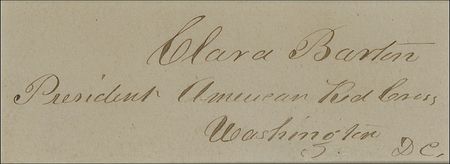 Clara Barton
President American Red Cross
Washington
D.C.